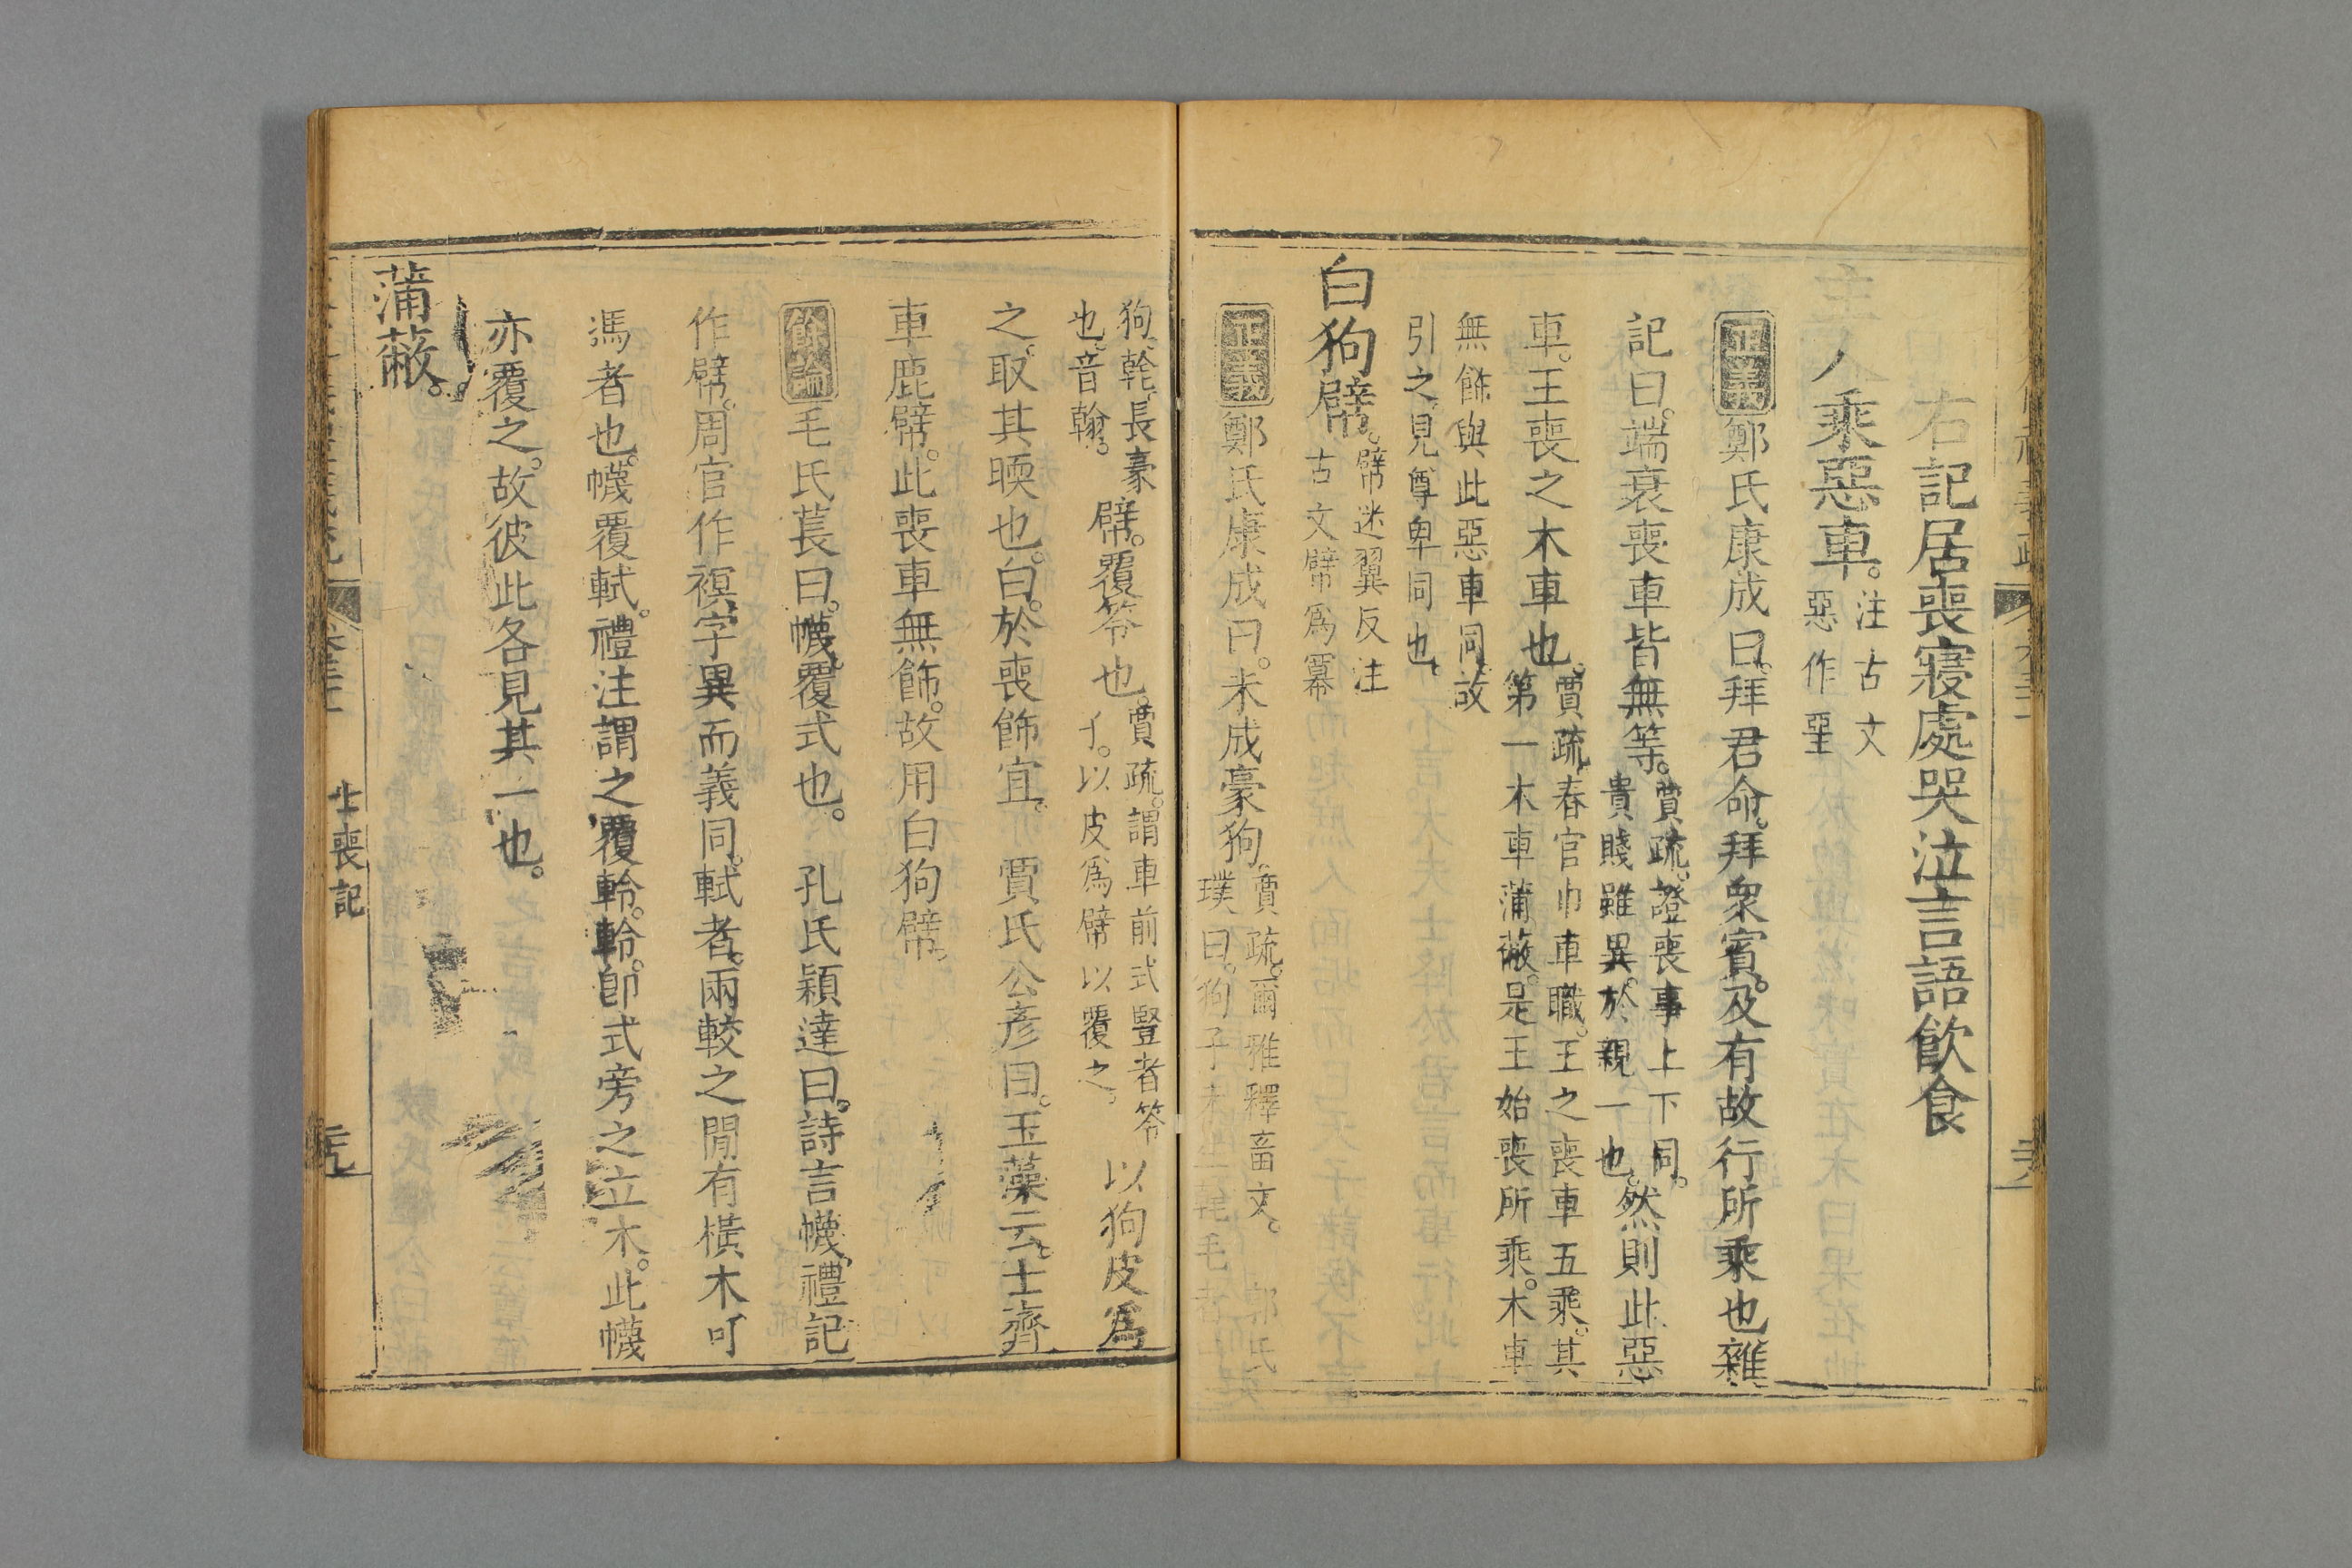 右記居喪寢處哭泣言語飲食
主人乘惡車。注古文
惡作堊
正義鄭氏康成曰。拜君命。拜衆賓。及有故行所乘也雜
記曰。端衰喪車皆無等。賈疏。證喪事上下同。
貴賤雖異。於親一也。然則此惡
車。王喪之木車也。賈疏。春官巾車職。王之喪車五乘。其
第一木車蒲蔽。是王始喪所乘。木車
無飾與此惡車同。故
引之。見尊卑同也。
白狗幦。幦迷翼反注
古文幦爲冪
正義鄭氏康成曰。未成豪狗。賈疏。爾雅釋畜文。郭氏
璞曰。狗子未生毛者
狗。乾。長豪
也。音翰。幦。覆笭也。賈疏。謂車前式豎者笭
以皮爲幦以覆之。以狗皮爲
之。取其臑也。白。於喪飾宜。賈氏公彥曰。玉藻云。士齊
車鹿幦。此喪車無飾。故用白狗幦。
餘論毛氏萇曰。幭。覆式也。孔氏穎達曰。詩言幭。禮記
作幦。周官作幎。字異而義同。軾者。兩較之間有橫木可
馮者也。幭覆軾。禮注謂之覆軨。軨。卽式旁之立木。此幭
亦覆之。故彼此各見其一也。
蒲蔽。
士喪記